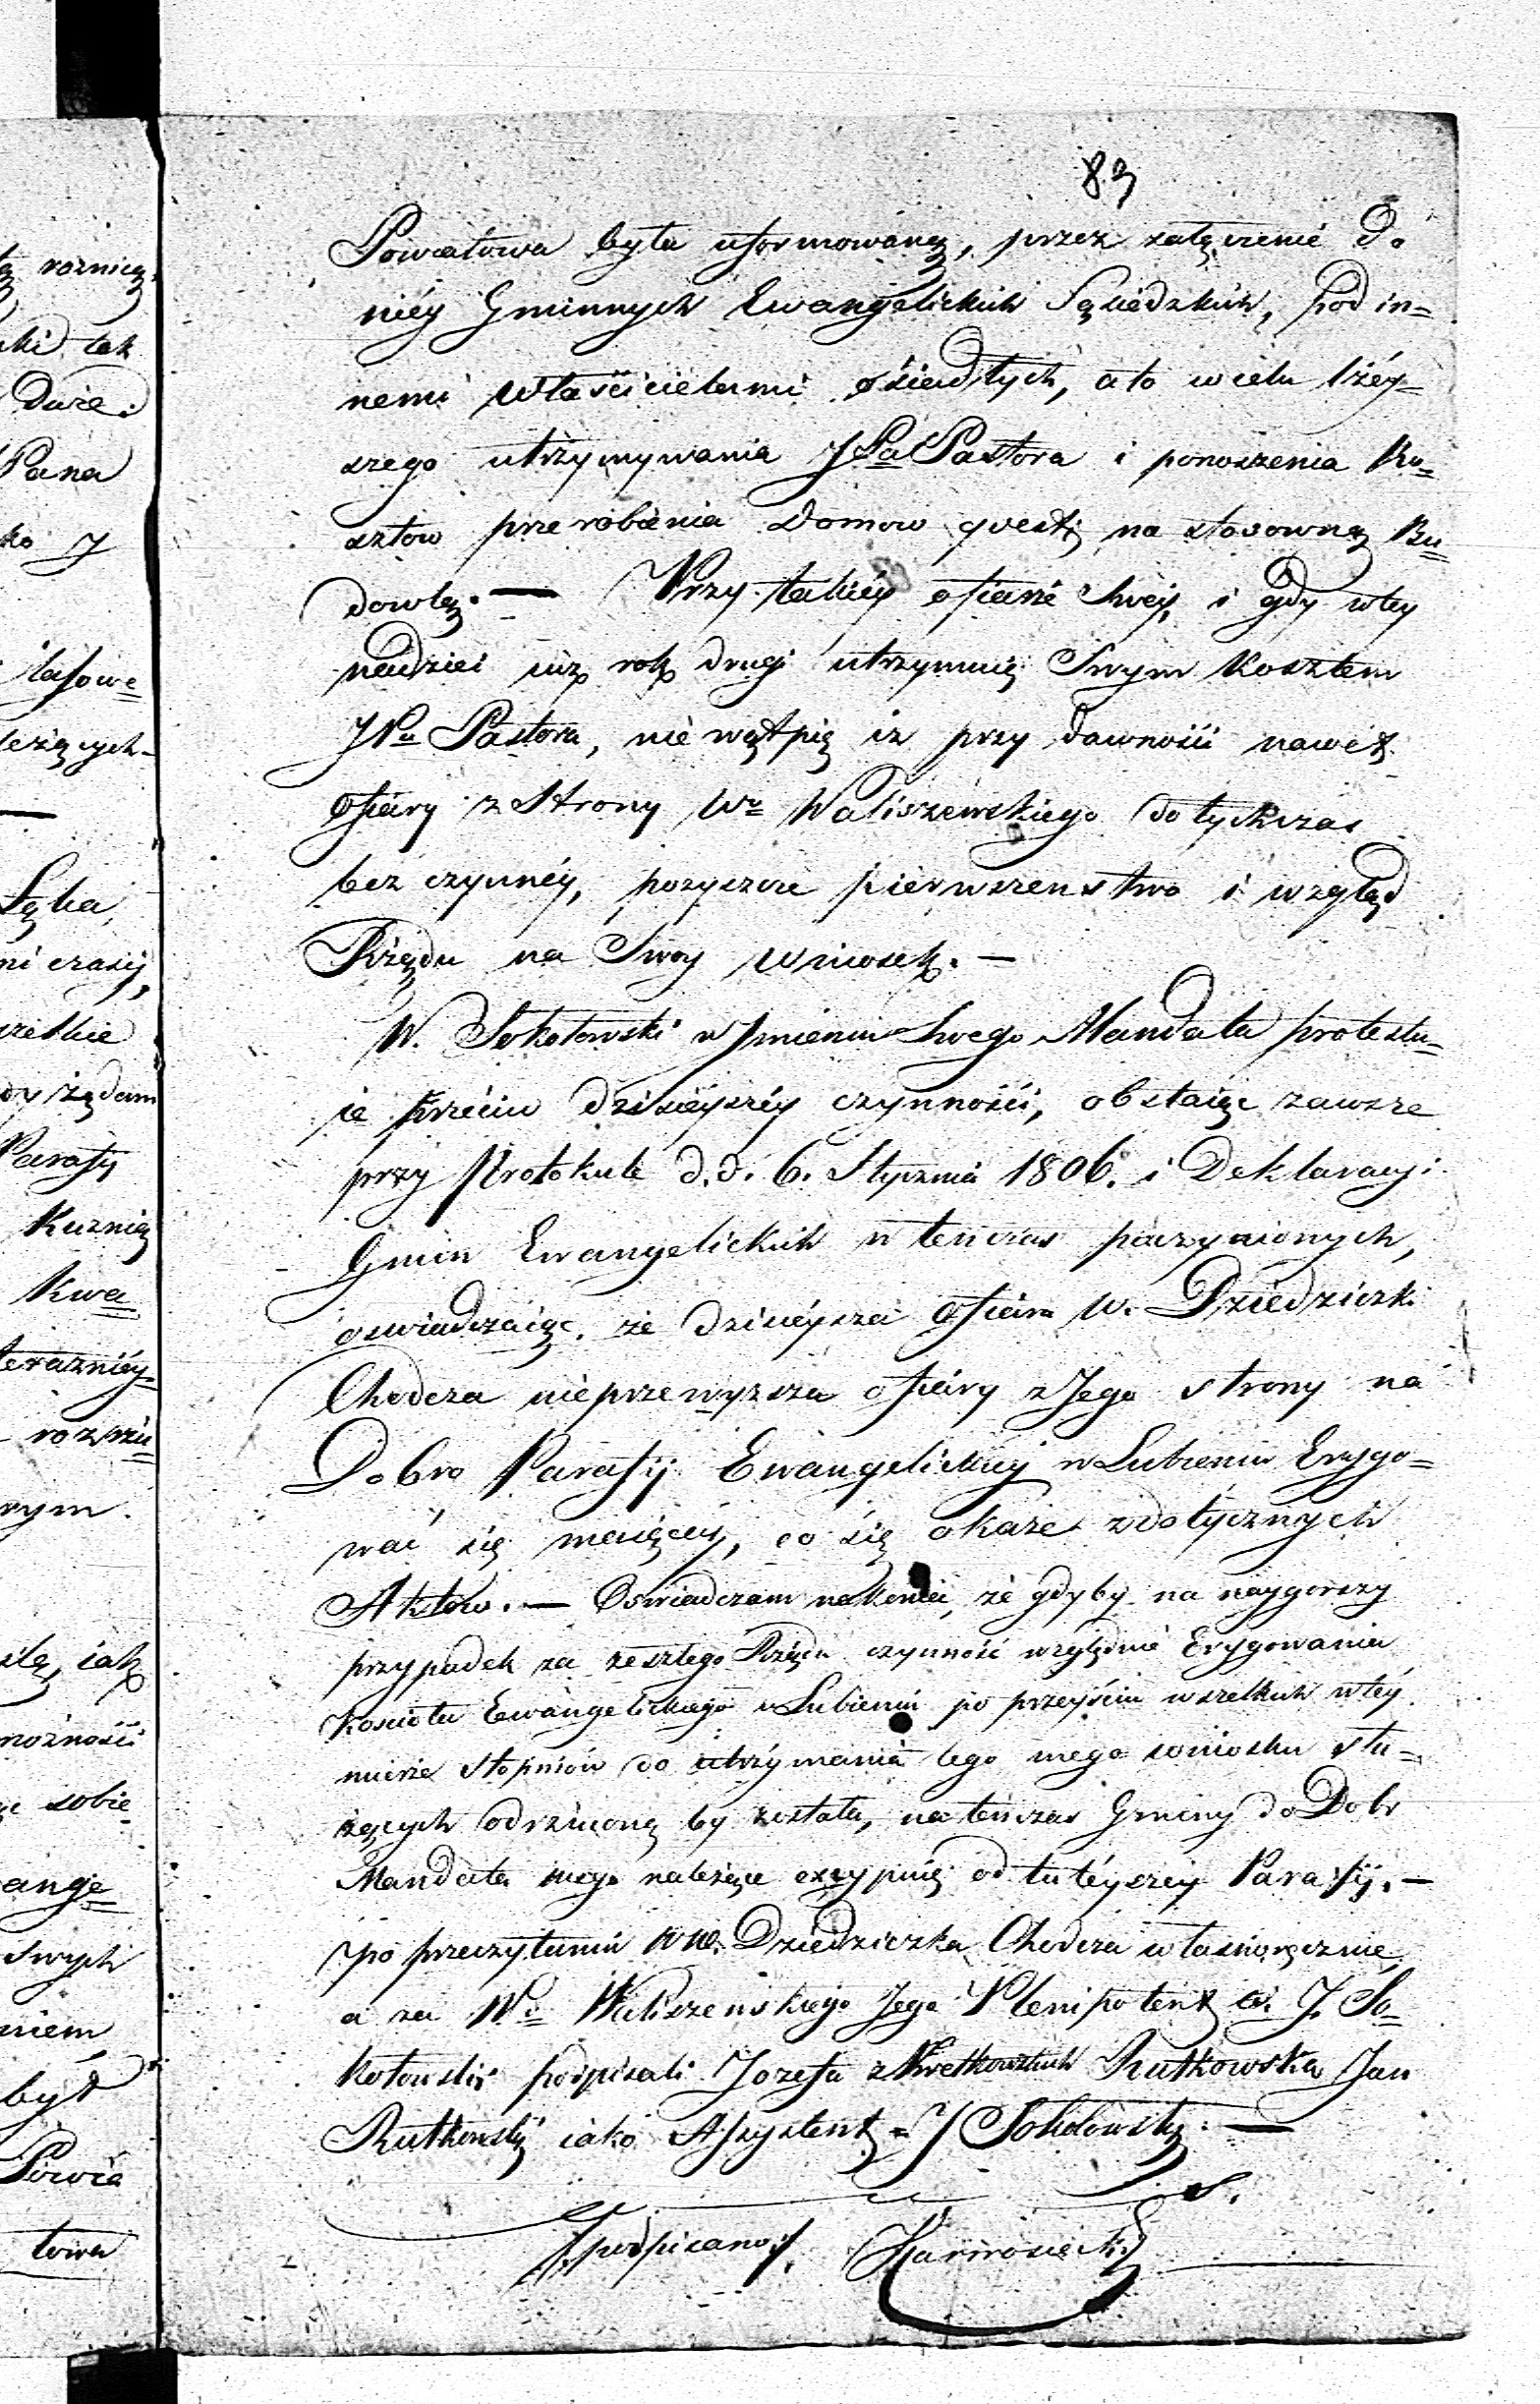 83
Powiatowa była uformowaną, przez załączenie do
niéy Gminnych Ewangelickich Sąsiedzkich, pod in=
nemi Właścicielami osiadłych, a to w celu lżéy=
szego utrzymywania JPa Pastora i ponoszenia Ko=
sztow przerobienia Domow quest: na stosowną Bu=
dowlę. — Przy takiéy ofierze Swéy, i gdy w tey
nadziei iuż rok drugi utrzymuię Swym Kosztem
JPa Pastora, nie wątpię iż przy dawności nawet
ofiary z Strony Wo Waliszewskiego dotychczas
bez czynnéy, pozyszcze pierwszenstwo i wzgląd
Rządu na Swoy wniosek. —
W. Sokołowski w Jmieniu Swego Mandata protestu=
ie przeciw dzisieyszéy czynności, obstaiąc zawsze
przy Protokule d. d. 6. Stycznia 1806. i Deklaracyi
Gmin Ewangelickich w tenczas poczynionych,
oswiadczaiąc, że dzisieysza ofiara W. Dziedziczki
Chodcza nieprzewyzsza ofiary z Jego strony na
Dobro Parafij Ewangelickiey w Lubieniu Erygo=
wać się maiącey, co się okaże z dotycznych
Aktow. — Oswiadczam nakoniec, że gdyby na naygorszy
przypadek za zeszłego Rządu czynność względnie Erygowania
Koscioła Ewangelickiego w Lubieniu po przeyściu wszelkich w téy
mierze stopniów do utrzymania tego mego wniosku słu=
żących odrzuconą by została, na tenczas Gminy do Dobr
Mandata mego należące excypuię od tuteyszey Parafij. —
po przeczytaniu WW. Dziedziczka Chodcza własnoręcznie,
a za Wo Waliszewskiego Jego Plenipotent W. J. So=
kołowski podpisali Jozefa z Kretkowskich Rutkowska Jan
Rutkowski iako Assystent = J Sokołowski. —
/: podpisano :/ Karwosiecki